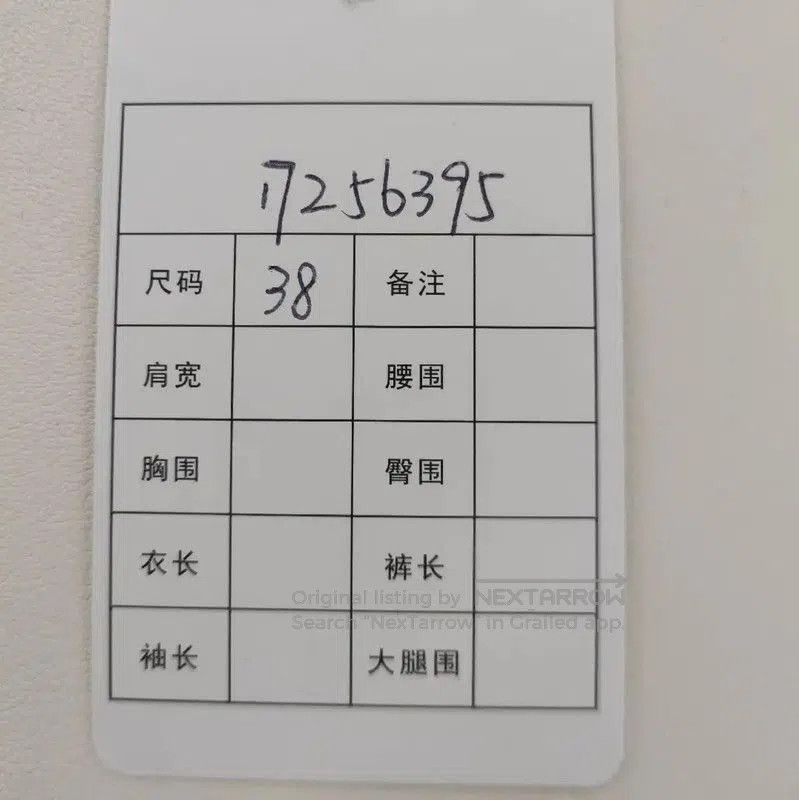 17256395
尺码 38 备注
肩宽 腰围
胸围 臀围
衣长 裤长
Original listing by NEXTARROW
Search "NexTarrow" in Grailed app.
袖长 大腿围